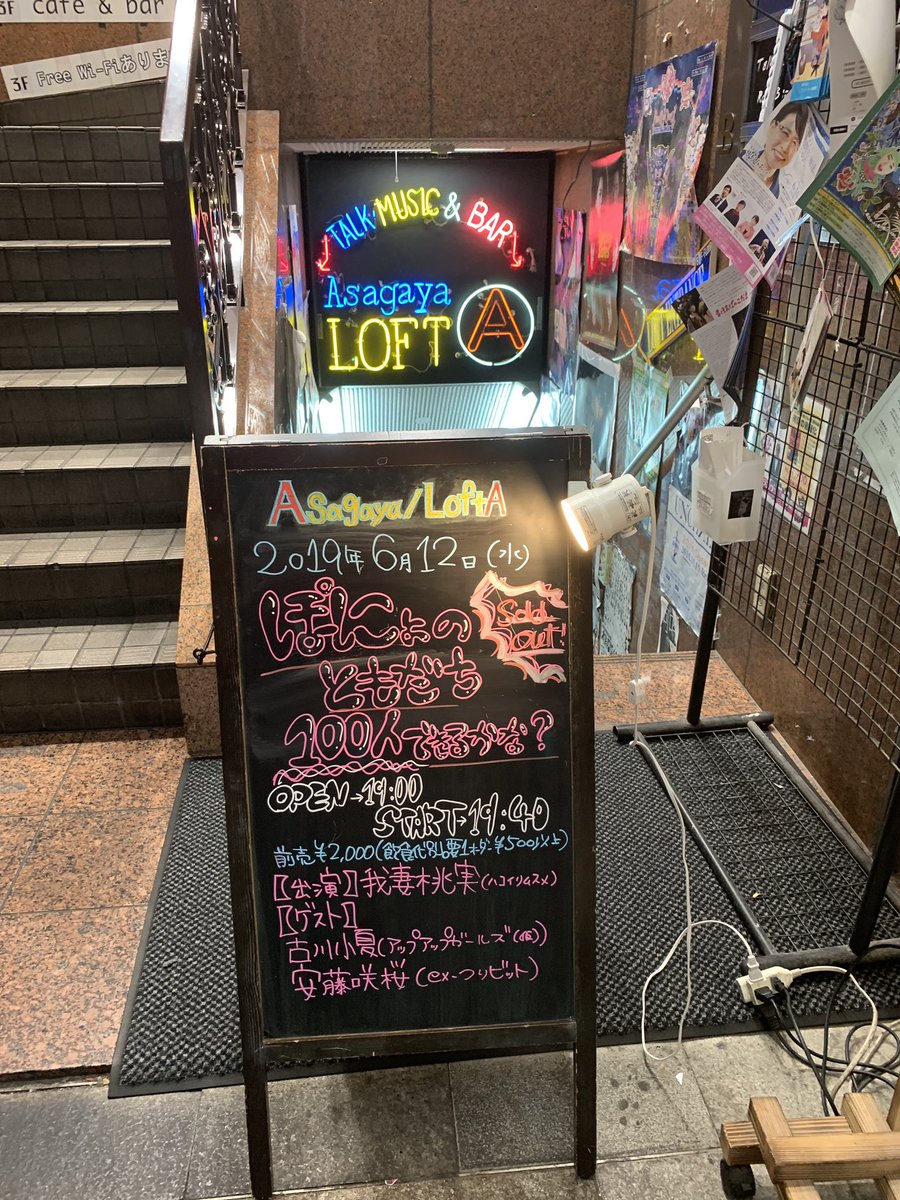 3F cafe & bar
3F Free Wi-Fiありま
TALK・MUSIC & BAR
Asagaya
LOFT A
Asagaya/LoftA
2019年6月12日(水)
ぽにょの
Sold
out!
ともだち
100人で
OPEN→19:00
START→19:40
前売¥2,000(飲食代別・要1オーダー¥500以上)
【出演】我妻桃実(ハコイリムスメ)
【ゲスト】
古川小夏(アップアップガールズ(仮))
安藤咲桜(ex-つりビット)